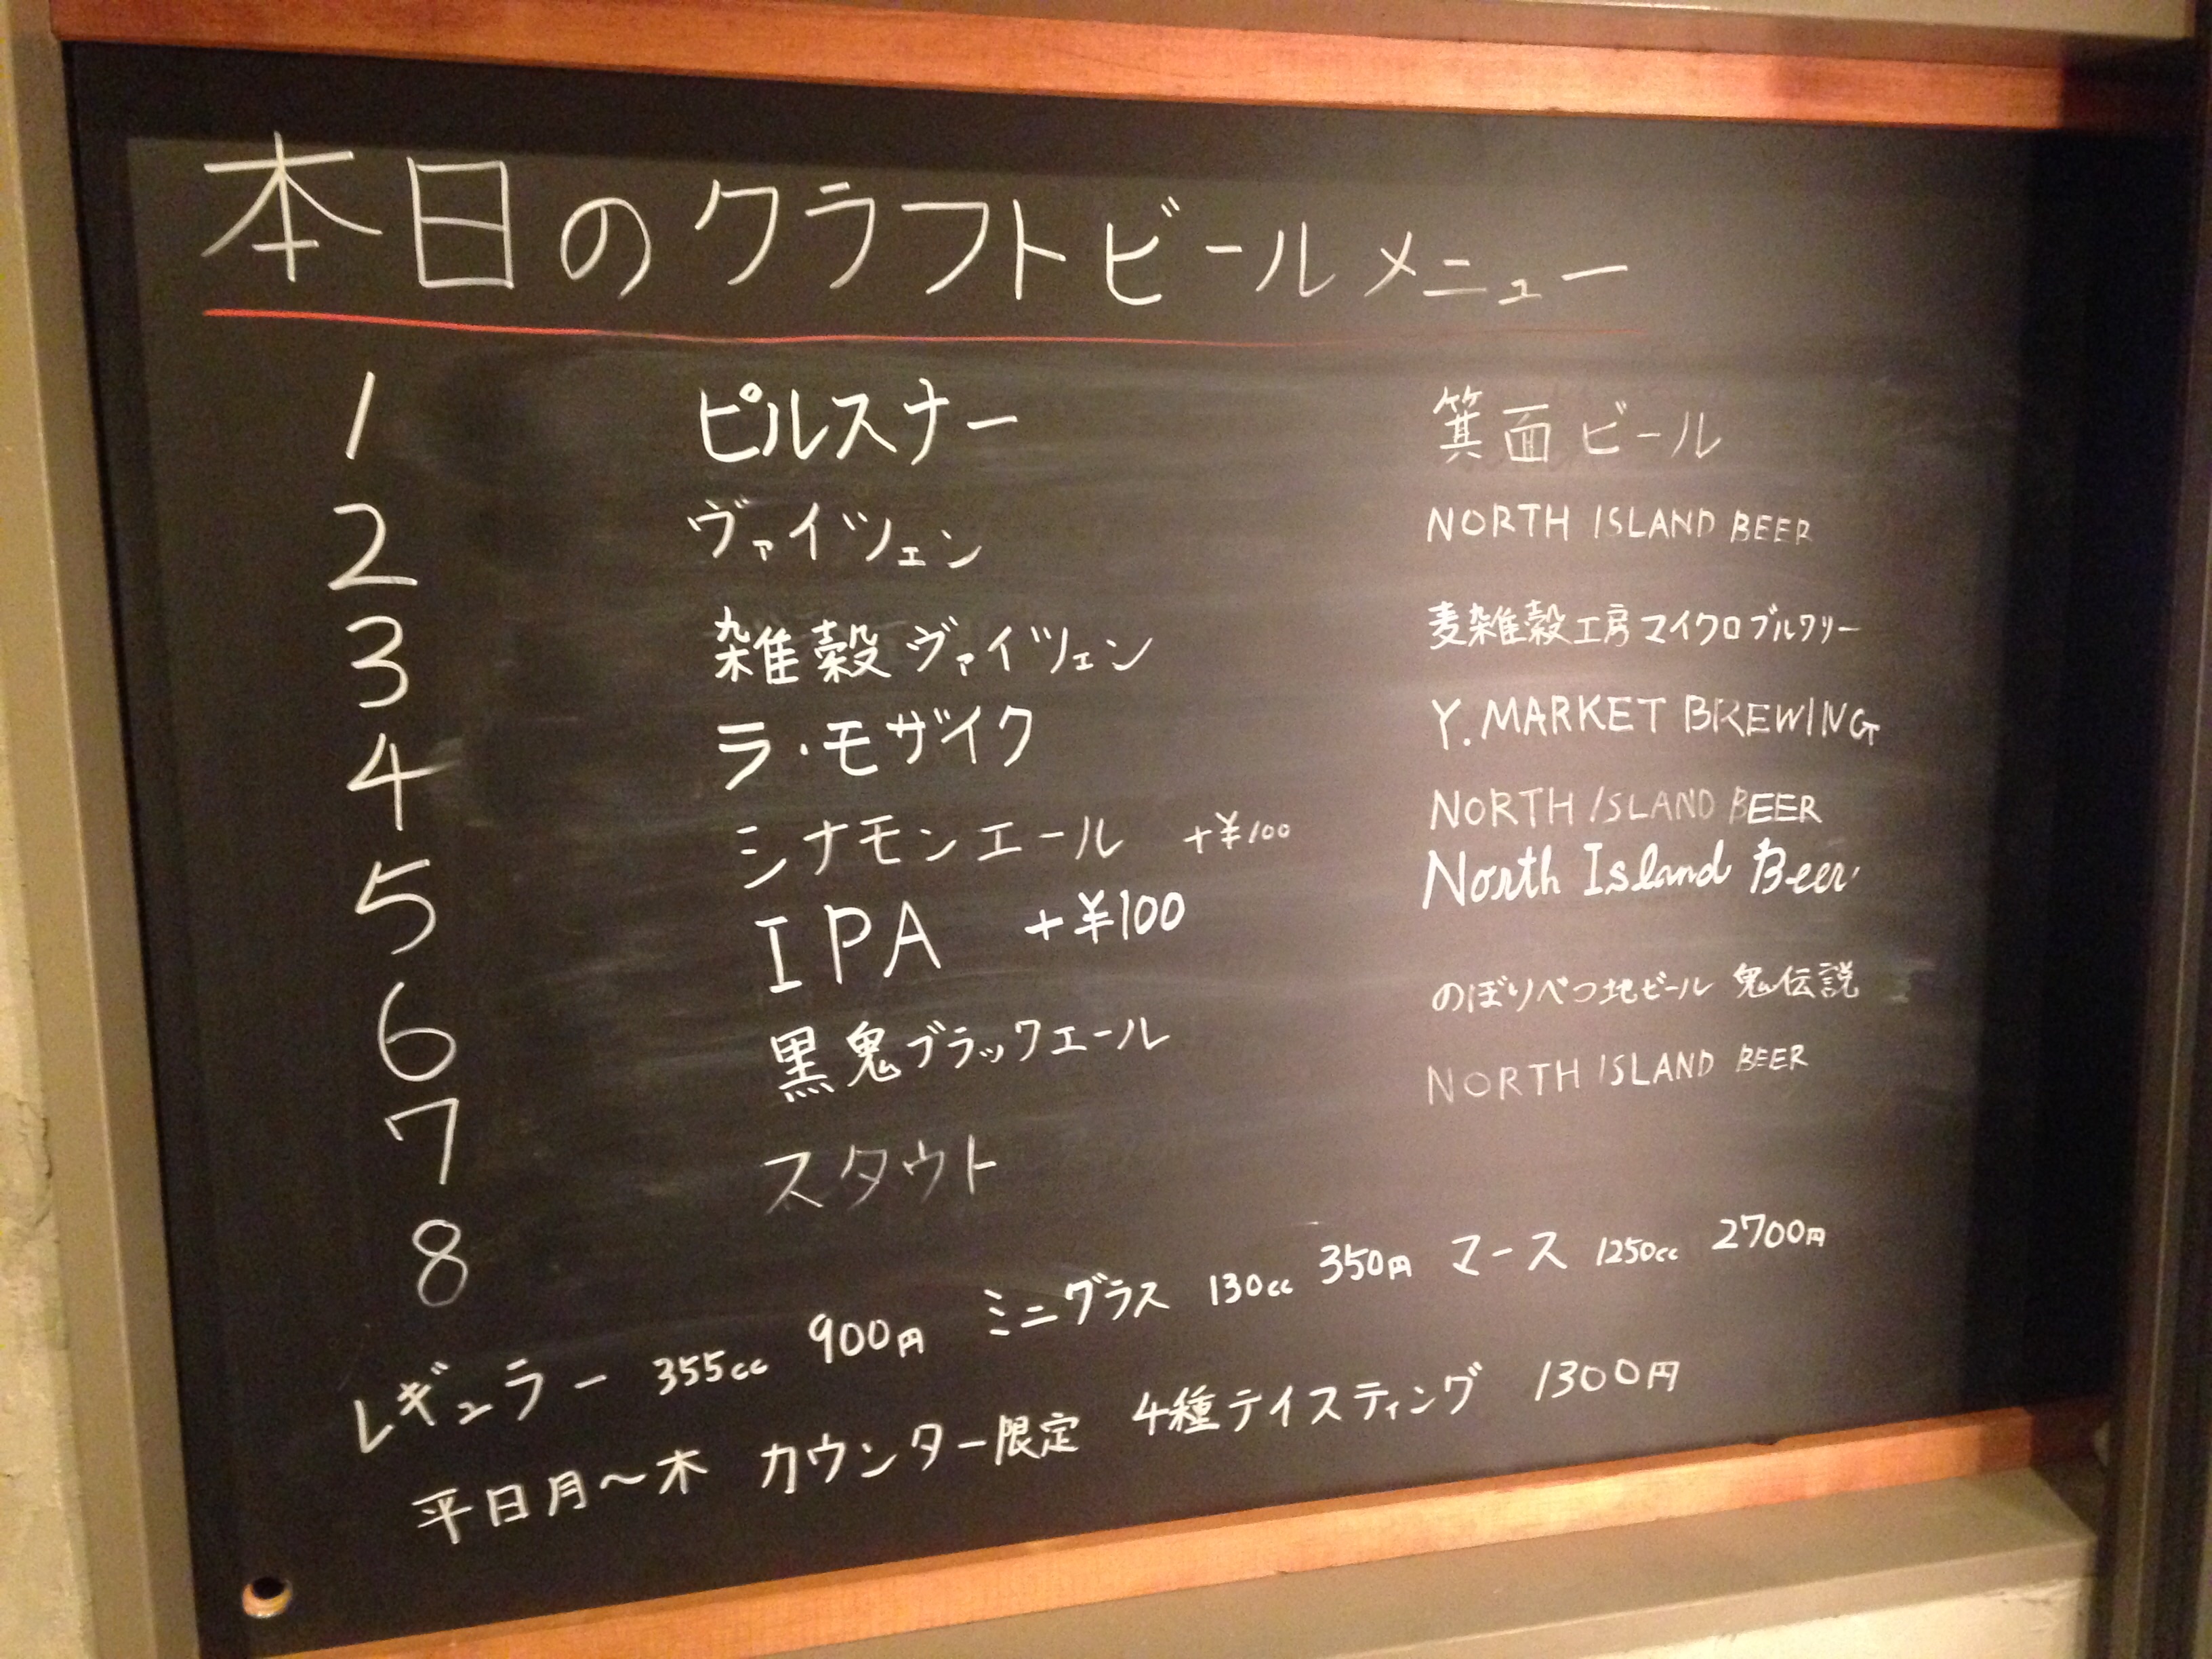 本日のクラフトビールメニュー
1 ピルスナー 箕面ビール
2 ヴァイツェン NORTH ISLAND BEER
3 雑穀ヴァイツェン 麦雑穀工房マイクロブルワリー
4 ラ・モザイク Y. MARKET BREWING
5 シナモンエール +¥100 NORTH ISLAND BEER
6 IPA +¥100 North Island Beer
7 黒鬼ブラックエール のぼりべつ地ビール 鬼伝説
8 スタウト NORTH ISLAND BEER
レギュラー 355cc 900円 ミニグラス 130cc 350円 マース 1250cc 2700円
平日月〜木 カウンター限定 4種テイスティング 1300円